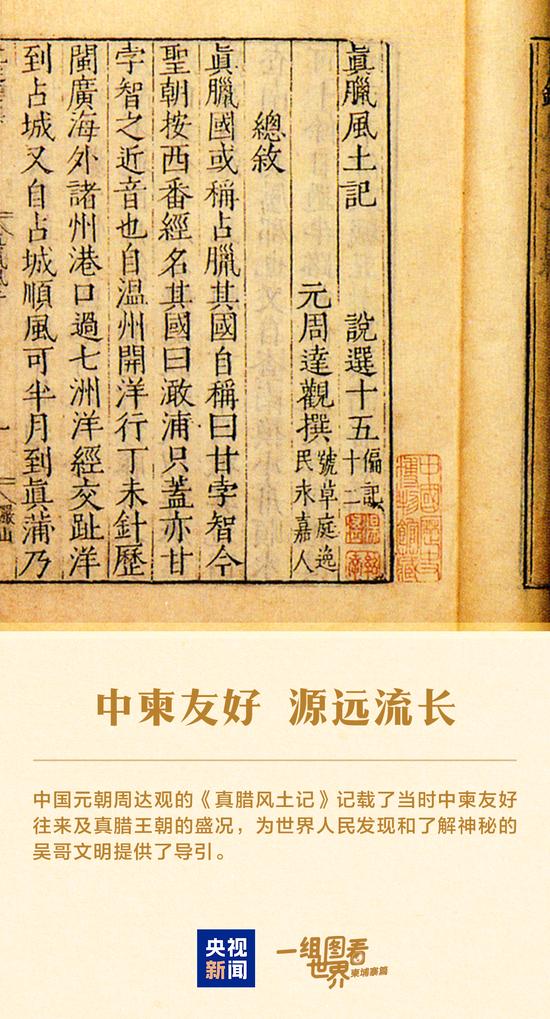 眞臘風土記 說選十五 偏記十二
元周達觀撰 號草庭逸民永嘉人
總敘
眞臘國或稱占臘其國自稱曰甘孛智今
聖朝按西番經名其國曰澉浦只蓋亦甘
孛智之近音也自溫州開洋行丁未針歷
閩廣海外諸州港口過七洲洋經交趾洋
到占城又自占城順風可半月到眞蒲乃
中國歷史博物館藏
中柬友好 源远流长
中国元朝周达观的《真腊风土记》记载了当时中柬友好
往来及真腊王朝的盛况，为世界人民发现和了解神秘的
吴哥文明提供了导引。
央视
新闻
一组图看
世界 柬埔寨篇